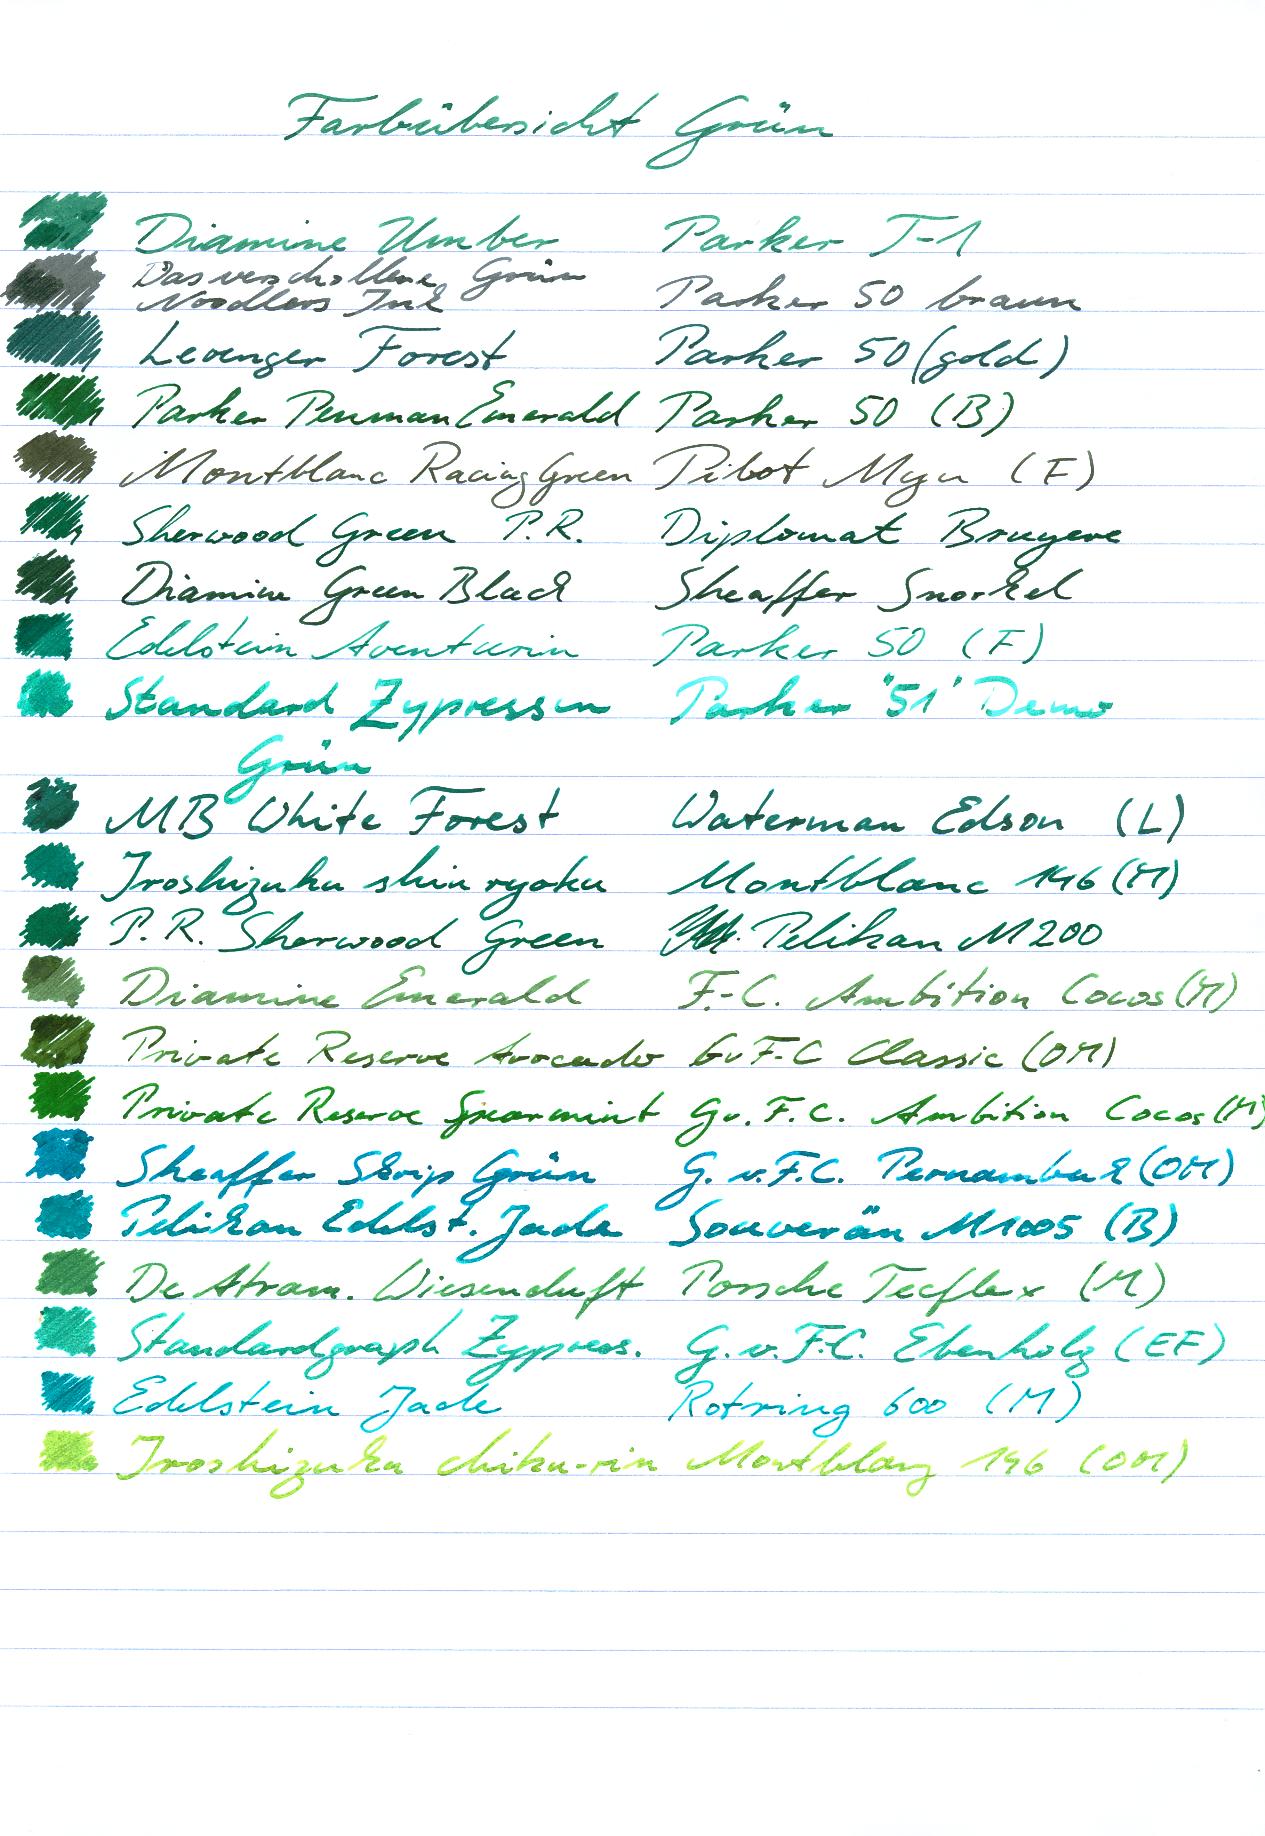 Farbübersicht Grün
Diamine Umber Parker T-1
Das verschollene Grün
Noodlers Ink Parker 50 braun
Levenger Forest Parker 50 (gold)
Parker Penman Emerald Parker 50 (B)
Montblanc Racing Green Pibot Myu (F)
Sherwood Green P.R. Diplomat Bruyere
Diamine Green Black Sheaffer Snorkel
Edelstein Aventurin Parker 50 (F)
Standard Zypressen Parker "51" Demo
Grün
MB White Forest Waterman Edson (L)
Iroshizuku shin ryoku Montblanc 146 (M)
P.R. Sherwood Green Pelikan M200
Diamine Emerald F.-C. Ambition Cocos (M)
Private Reserve Avocado GvF-C Classic (OM)
Private Reserve Spearmint Gv.F.C. Ambition Cocos (M)
Sheaffer Skrip Grün G.v.F.C. Pernambuk (OM)
Pelikan Edelst. Jade Souverän M1005 (B)
De Atram. Wiesenduft Porsche Tecflex (M)
Standardgraph Zypress. G.v.F.C. Ebenholz (EF)
Edelstein Jade Rotring 600 (M)
Iroshizuku chiku-rin Montblanc 146 (OM)